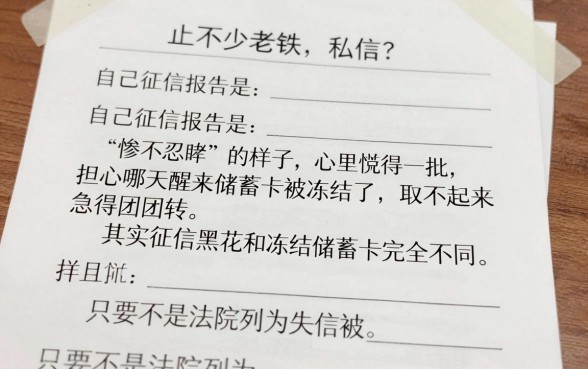 止不少老铁，私信？
自己征信报告是：
自己征信报告是：
“惨不忍睹”的样子，心里慌得一批，
担心哪天醒来储蓄卡被冻结了，取不起来
急得团团转。
其实征信黑花和冻结储蓄卡完全不同。
只要不是法院列为失信被。
只要不是法院列为